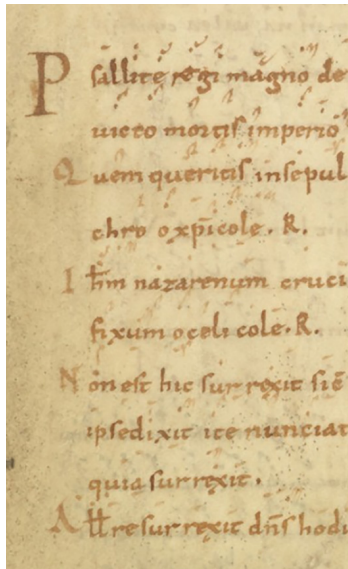 Psallite regi magno de
uicto mortis imperio
Quem queritis insepul
chro o xp̄icole. R.
Ih̄m nazarenum cruci
fixum o celi cole. R.
Non est hic surrexit sic̄
ipse dixit ite nunciat
quia surrexit.
All̄ resurrexit dn̄s hodi